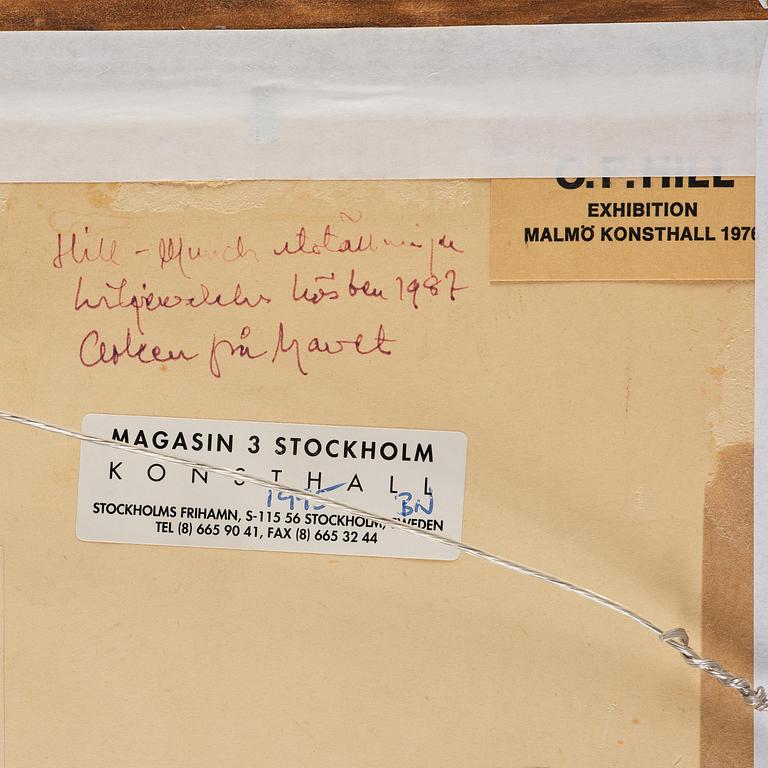 C.F. HILL
EXHIBITION
MALMÖ KONSTHALL 1976
Hill - Munch
Liljevalchs hösten 1987
på havet
MAGASIN 3 STOCKHOLM
KONSTHALL
1995 BN
STOCKHOLMS FRIHAMN, S-115 56 STOCKHOLM, SWEDEN
TEL (8) 665 90 41, FAX (8) 665 32 44